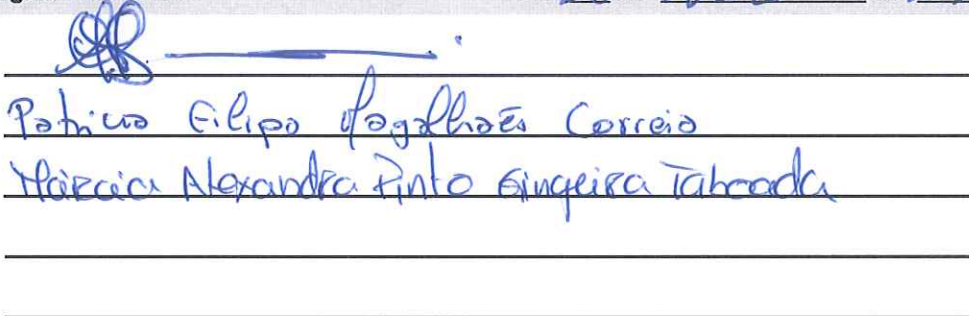 Patricia Filipa Magalhães Correia
Márcia Alexandra Pinto Gingeira Taboada